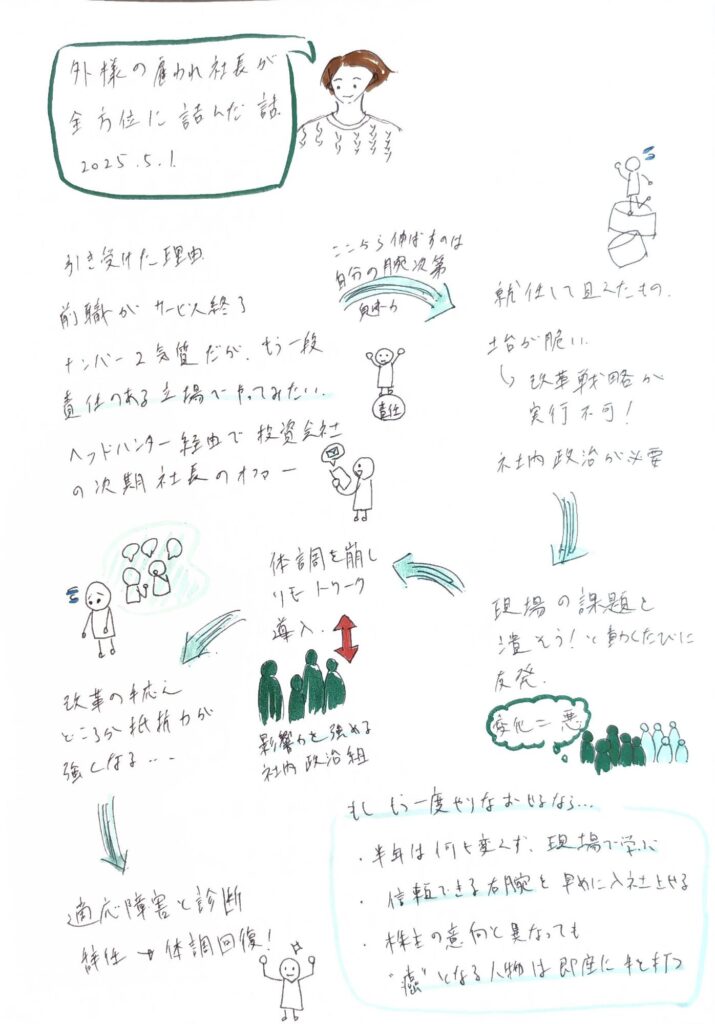 外様の雇われ社長が
全方位に詰んだ話
2025.5.1.
引き受けた理由
前職がサービス終了
ナンバー2気質だが、もう一段
責任のある立場でやってみたい。
ヘッドハンター経由で投資会社
の次期社長のオファー
ここから伸ばすのは
自分の腕次第
魅力
責任
就任して見えたもの。
土台が脆い
↳ 改革戦略が
実行不可!
社内政治が必要
現場の課題を
潰そう!と動くたびに
反発.
変化=悪
体調を崩し
リモートワーク
導入.
影響力を強める
社内政治組
改革の手応え
どころか抵抗力が
強くなる...
適応障害と診断
辞任→体調回復!
もし もう一度やりなおせるなら...
・半年は何も変えず、現場で学ぶ
・信頼できる右腕を早めに入社させる
・株主の意向と異なっても
"癌"となる人物は即座に手を打つ